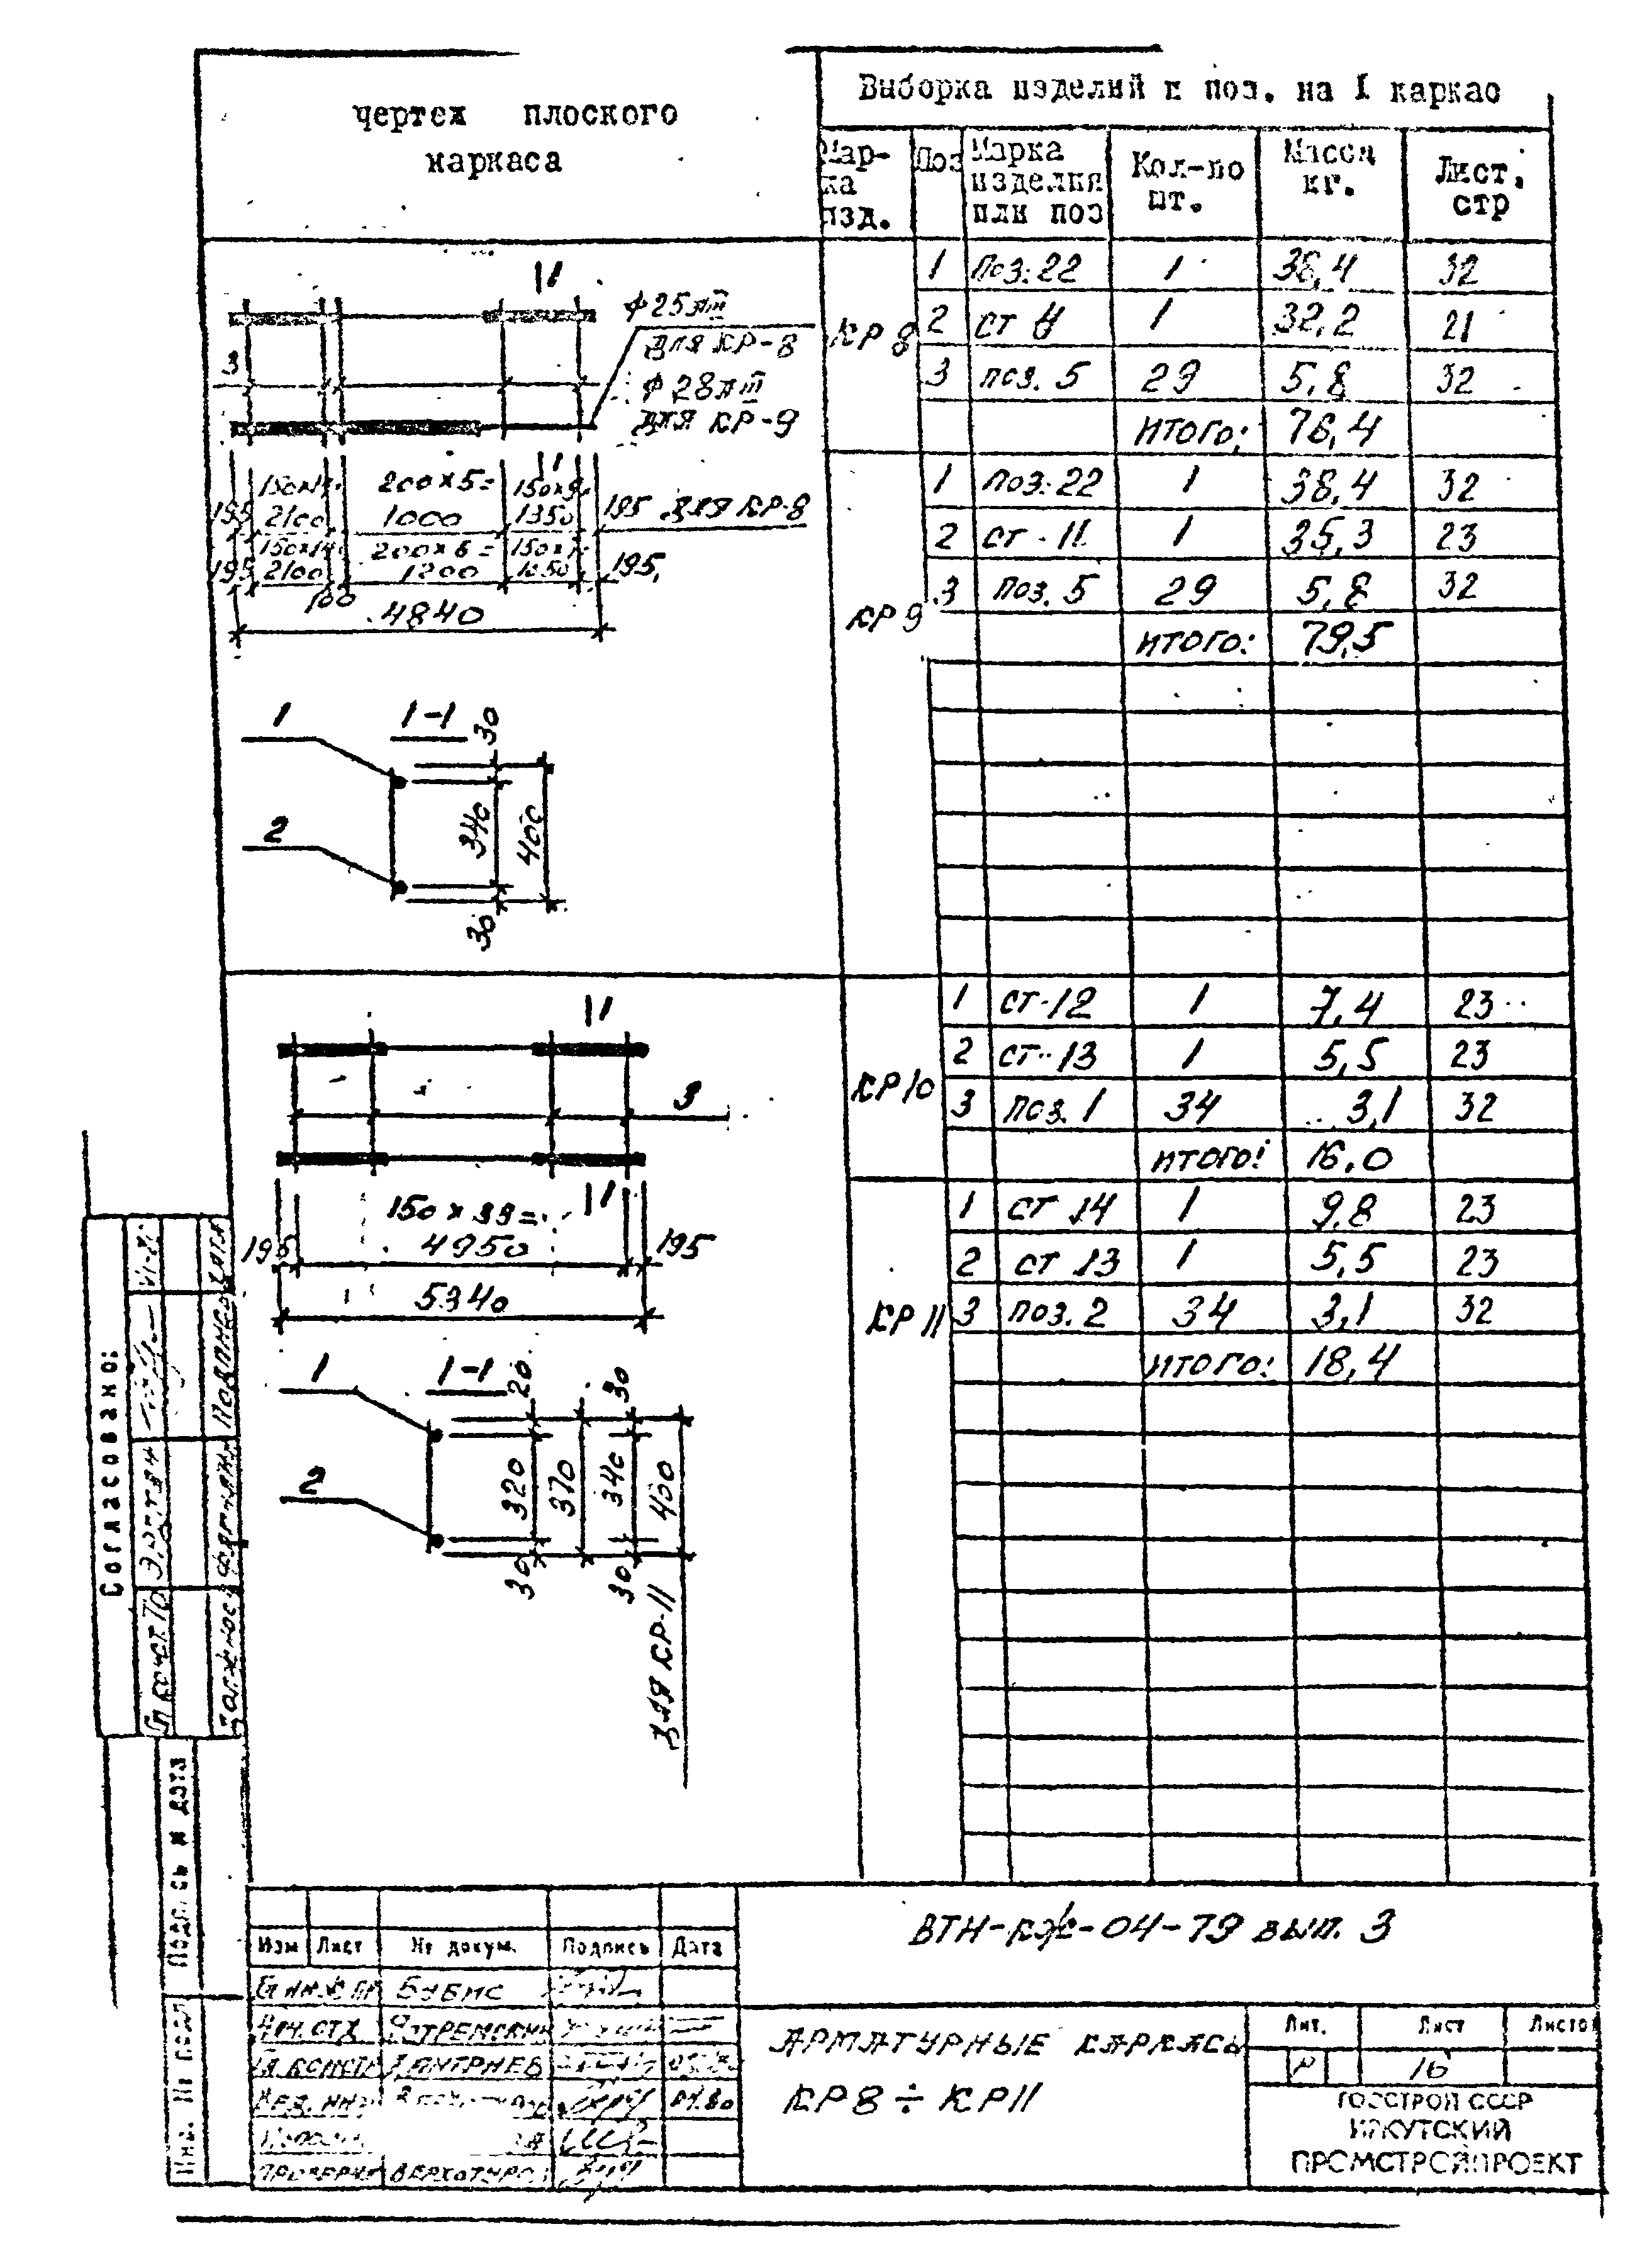 чертеж плоского
каркаса
Выборка изделий и поз. на 1 каркас
Мар-
ка
изд.
Поз
Марка
изделия
или поз
Кол-во
шт.
Масса
кг.
Лист,
стр
КР 8
1 поз. 22 1 38,4 32
2 ст 4 1 32,2 21
3 поз. 5 29 5,8 32
итого: 76,4
КР 9
1 поз. 22 1 38,4 32
2 ст-11 1 35,3 23
3 поз. 5 29 5,8 32
итого: 79,5
КР 10
1 ст-12 1 7,4 23
2 ст-13 1 5,5 23
3 поз. 1 34 3,1 32
итого: 16,0
КР 11
1 ст 14 1 9,8 23
2 ст 13 1 5,5 23
3 поз. 2 34 3,1 32
итого: 18,4
1
ф 25 АIII
для КР-8
ф 28 АIII
для КР-9
3
1
195 150×14= 200×5= 150×9= 195 для КР-8
2100 1000 1350
195 150×14= 200×6= 150×7= 195
2100 1200 1050
100
4840
1
1-1
30
2
340
400
30
1
3
1
150 × 33 =
195 4950 195
5340
1
1-1
20
30
2
320
370
340
400
30
30
для КР-11
Согласовано:
Подпись и дата
Инв. № подл
Изм Лист № докум. Подпись Дата
Гл инж пр Бубис
Нач. отд
Гл. констр
04.80
Проверил
ВТН-КЖ-04-79 вып. 3
АРМАТУРНЫЕ КАРКАСЫ
КР8 ÷ КР11
Лит. Лист Листов
Р 16
ГОССТРОЙ СССР
ИРКУТСКИЙ
ПРОМСТРОЙПРОЕКТ